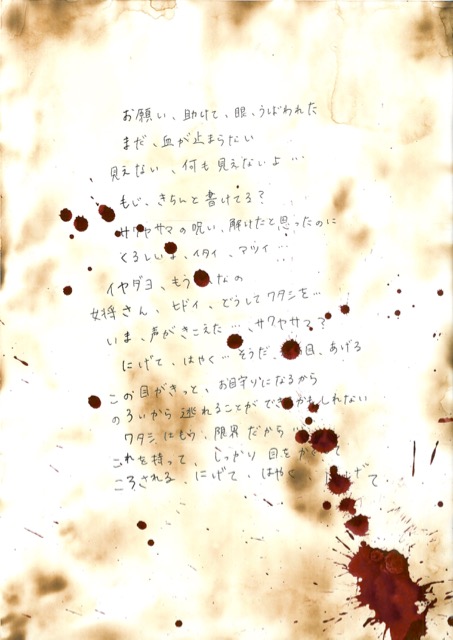 お願い、助けて、眼、うばわれた
まだ、血が止まらない
見えない、何も見えないよ…
もじ、きちんと書けてる？
サワヤサマの呪い、解けたと思ったのに
くるしいよ、イタイ、マツイ…
イヤダヨ、もう なの
女将さん、ヒドイ、どうしてワタシを…
いま、声がきこえた…、サワヤサマ？
にげて、はやく…そうだ、 目、あげる
この目がきっと、お守りになるから
のろいから逃れることができるかもしれない
ワタシにもう、限界だから…
これを持って、しっかり目をかくして
ころされる、にげて、はやく げて